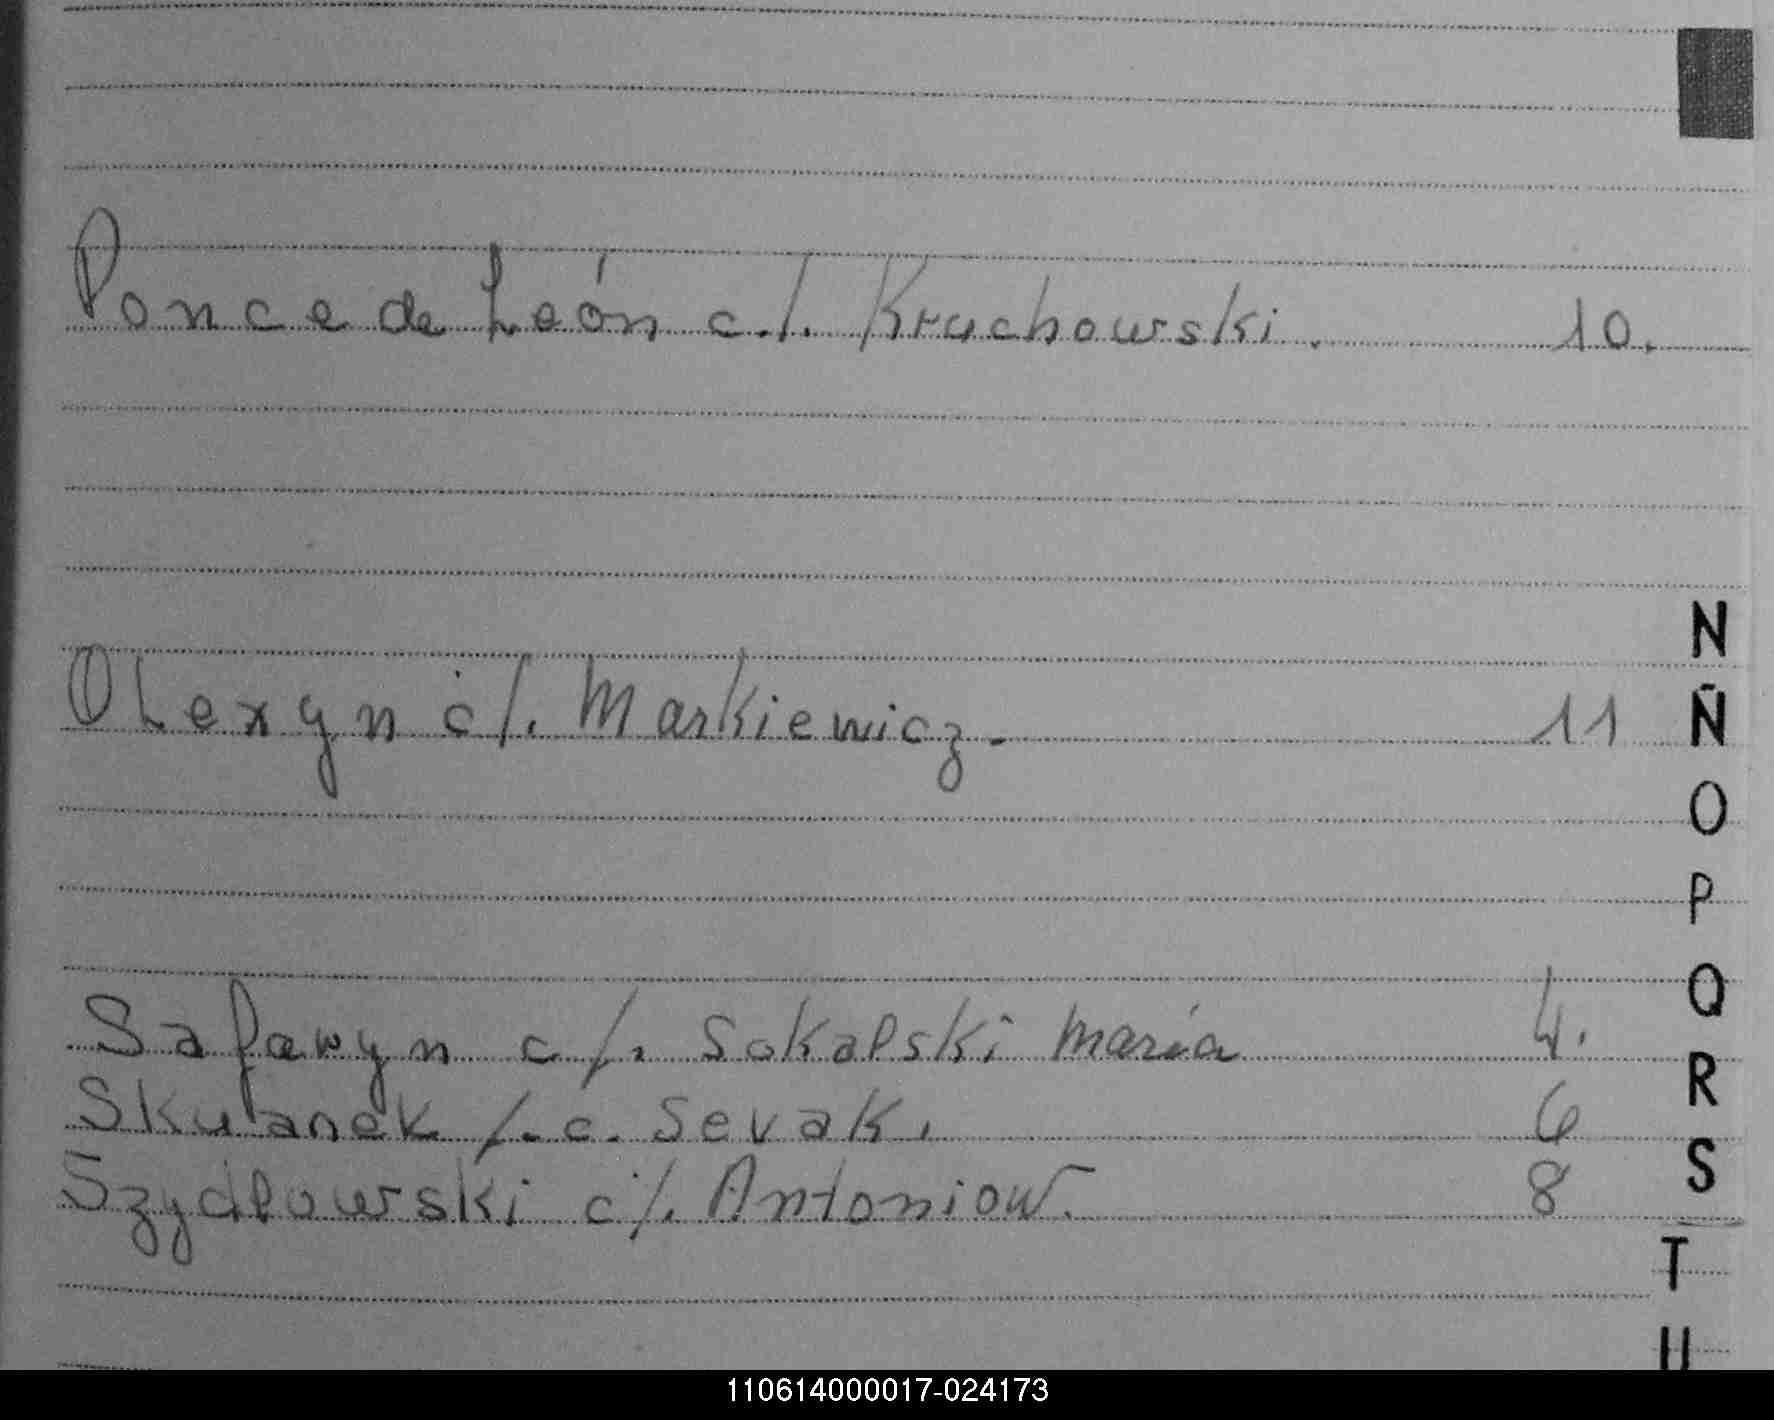 Ponce de León c./. Kruchowski. 10.
N
Olexyn c/. Markiewicz. 11
Ñ
O
P
Q
Safawyn c/. Sokalski María 4.
R
Skulanek /.c. Sevak. 6
S
Szydlowski c/. Antoniow. 8
T
U
110614000017-024173